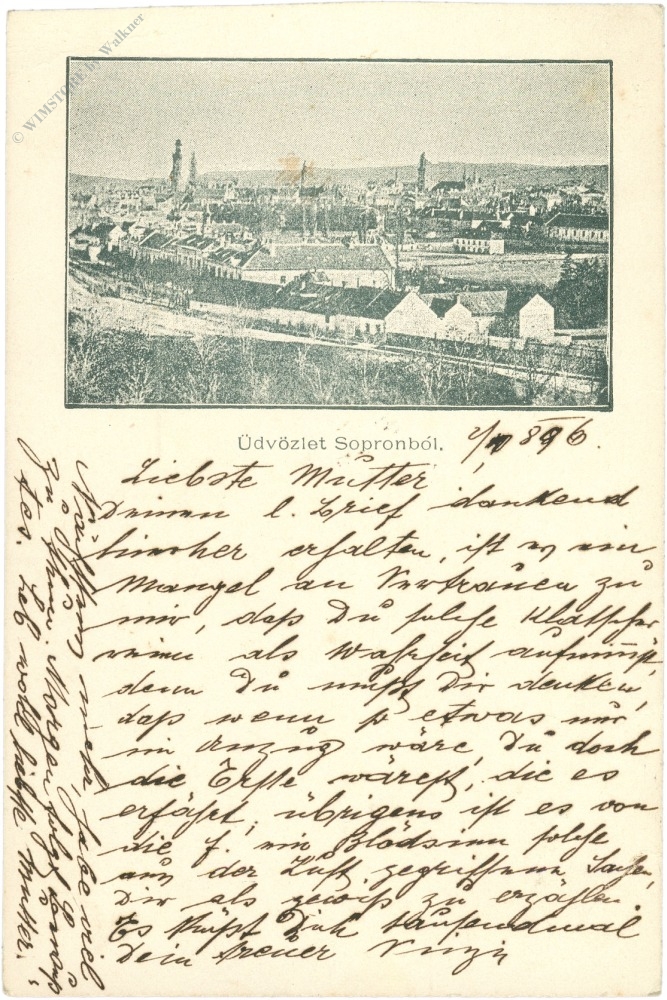 © WIMSTORE by Walkner
Üdvözlet Sopronból.
896.
Liebste Mutter
Deinen l. Brief dankend
hierher erhalten, ist es ein
Mangel an Vertrauen zu
mir, daß Du solche Klatsche-
reien als Wahrheit aufnimmst,
denn Du mußt Dir denken,
daß wenn so etwas nur
im Anzug wäre, Du doch
die Erste wärest, die es
erfährt; übrigens ist es von
die f. ein Blödsinn solche
aus der Luft gegriffene Sachen,
Dir als gewiß zu erzählen.
Es küßt Dich tausendmal
Dein treuer
mehr, habe viel
zu thun. Morgen folgt
Leb wohl liebste Mutter.